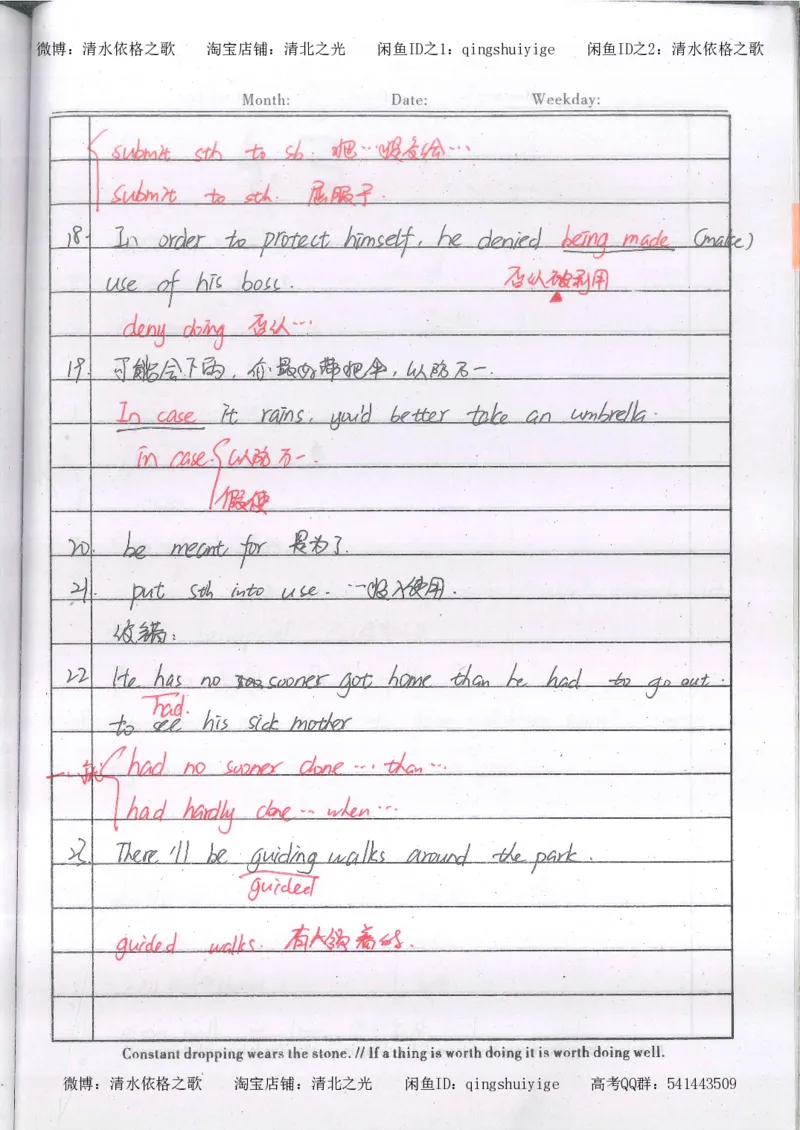 微博：清水依格之歌 淘宝店铺：清北之光 闲鱼ID之1：qingshuiyige 闲鱼ID之2：清水依格之歌
Month: Date: Weekday:
submit sth to sb 把…呈交给…
submit to sth. 屈服于.
18. In order to protect himself, he denied being made (make)
use of his boss.
否认被利用
deny doing 否认…
19. 可能会下雨，你最好带把伞，以防万一.
In case it rains, you'd better take an umbrella.
in case 以防万一.
假使
20. be meant for 是为了.
21. put sth into use. …投入使用.
改错：
22 He has no sooner got home than he had to go out.
had.
to see his sick mother
一…就 had no sooner done … than …
had hardly done … when …
23. There'll be guiding walks around the park.
guided
guided walks. 有人领着的.
Constant dropping wears the stone. // If a thing is worth doing it is worth doing well.
微博：清水依格之歌 淘宝店铺：清北之光 闲鱼ID：qingshuiyige 高考QQ群：541443509